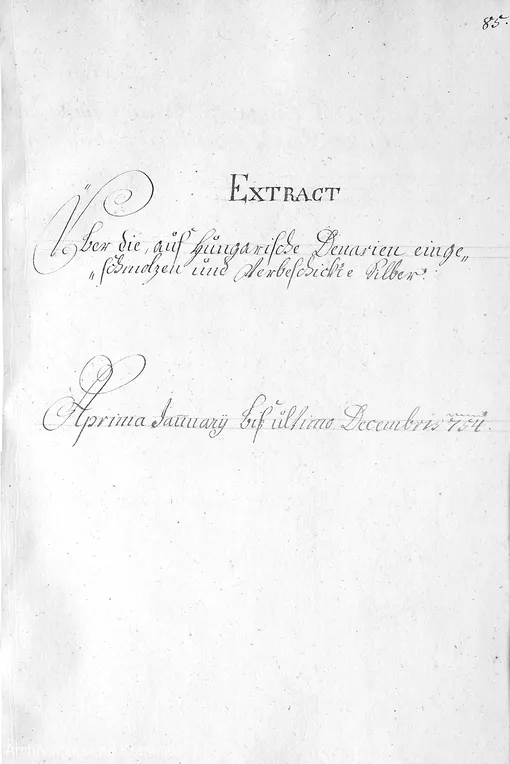 85.
EXTRACT
Über die, auf Hungarische Denarien einge„
„schmolzen und Verbeschickte Silber.
A prima January bis ultimo Decembris 754.